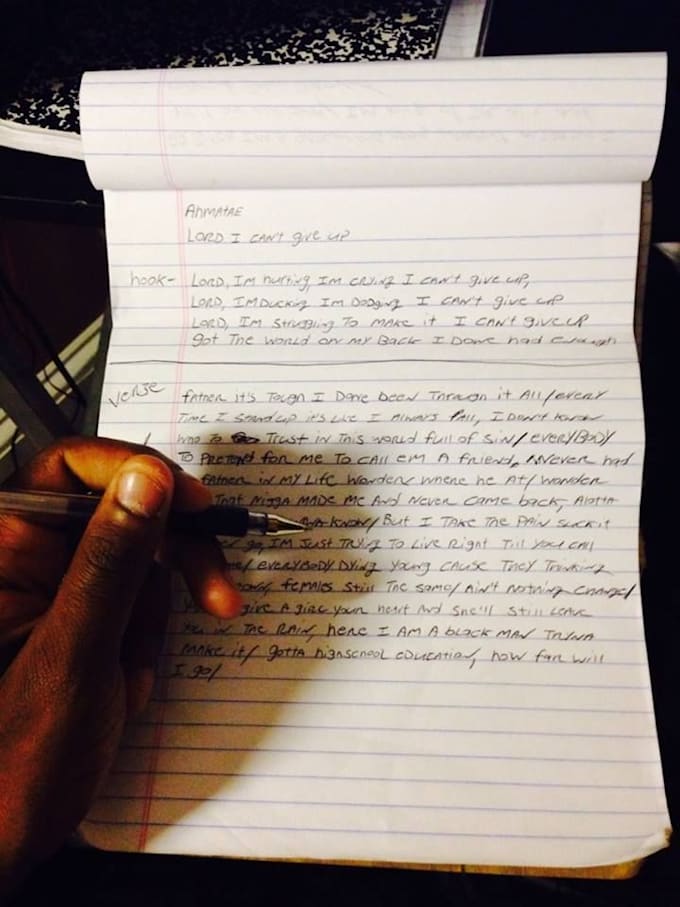 AhmaTAE
LORD I CAN'T give up
hook- LORD, I'M hurTing I'm CRYing I CAN'T give up,
LORD, I'M Ducking I'm DODging I CAN'T give UP
LORD, I'm STruggling To MAKE iT I CAN'T give UP
goT The WORLD on my BACK I Done had Enough
Verse fATher iT's Tough I Done Been Through iT All/every
Time I STAND up iT's Like I AlwAys fAll, I Don'T Know
who To TrusT in This world full of Sin/ everyBODY
To PreTend for me To CALL em A friend, Never had
fATher in my Life Wonder Where he AT/ Wonder
ThaT NiggA MADE me And Never CAme BACK, AloTTA
KNOW/ BuT I TAKE The PAin SucK iT
go, I'm JusT Trying To Live RighT Till you CAll
everyBODY Dying young CAuse They Thinking
femAles STill The SAme/ Ain'T NoThing ChAnge/
give A girl your heArT And She'll STill LeAve
you in The RAin, here I AM A blAck mAn Tryna
MAKE iT/ goTTA highschool education, how far will
I go/